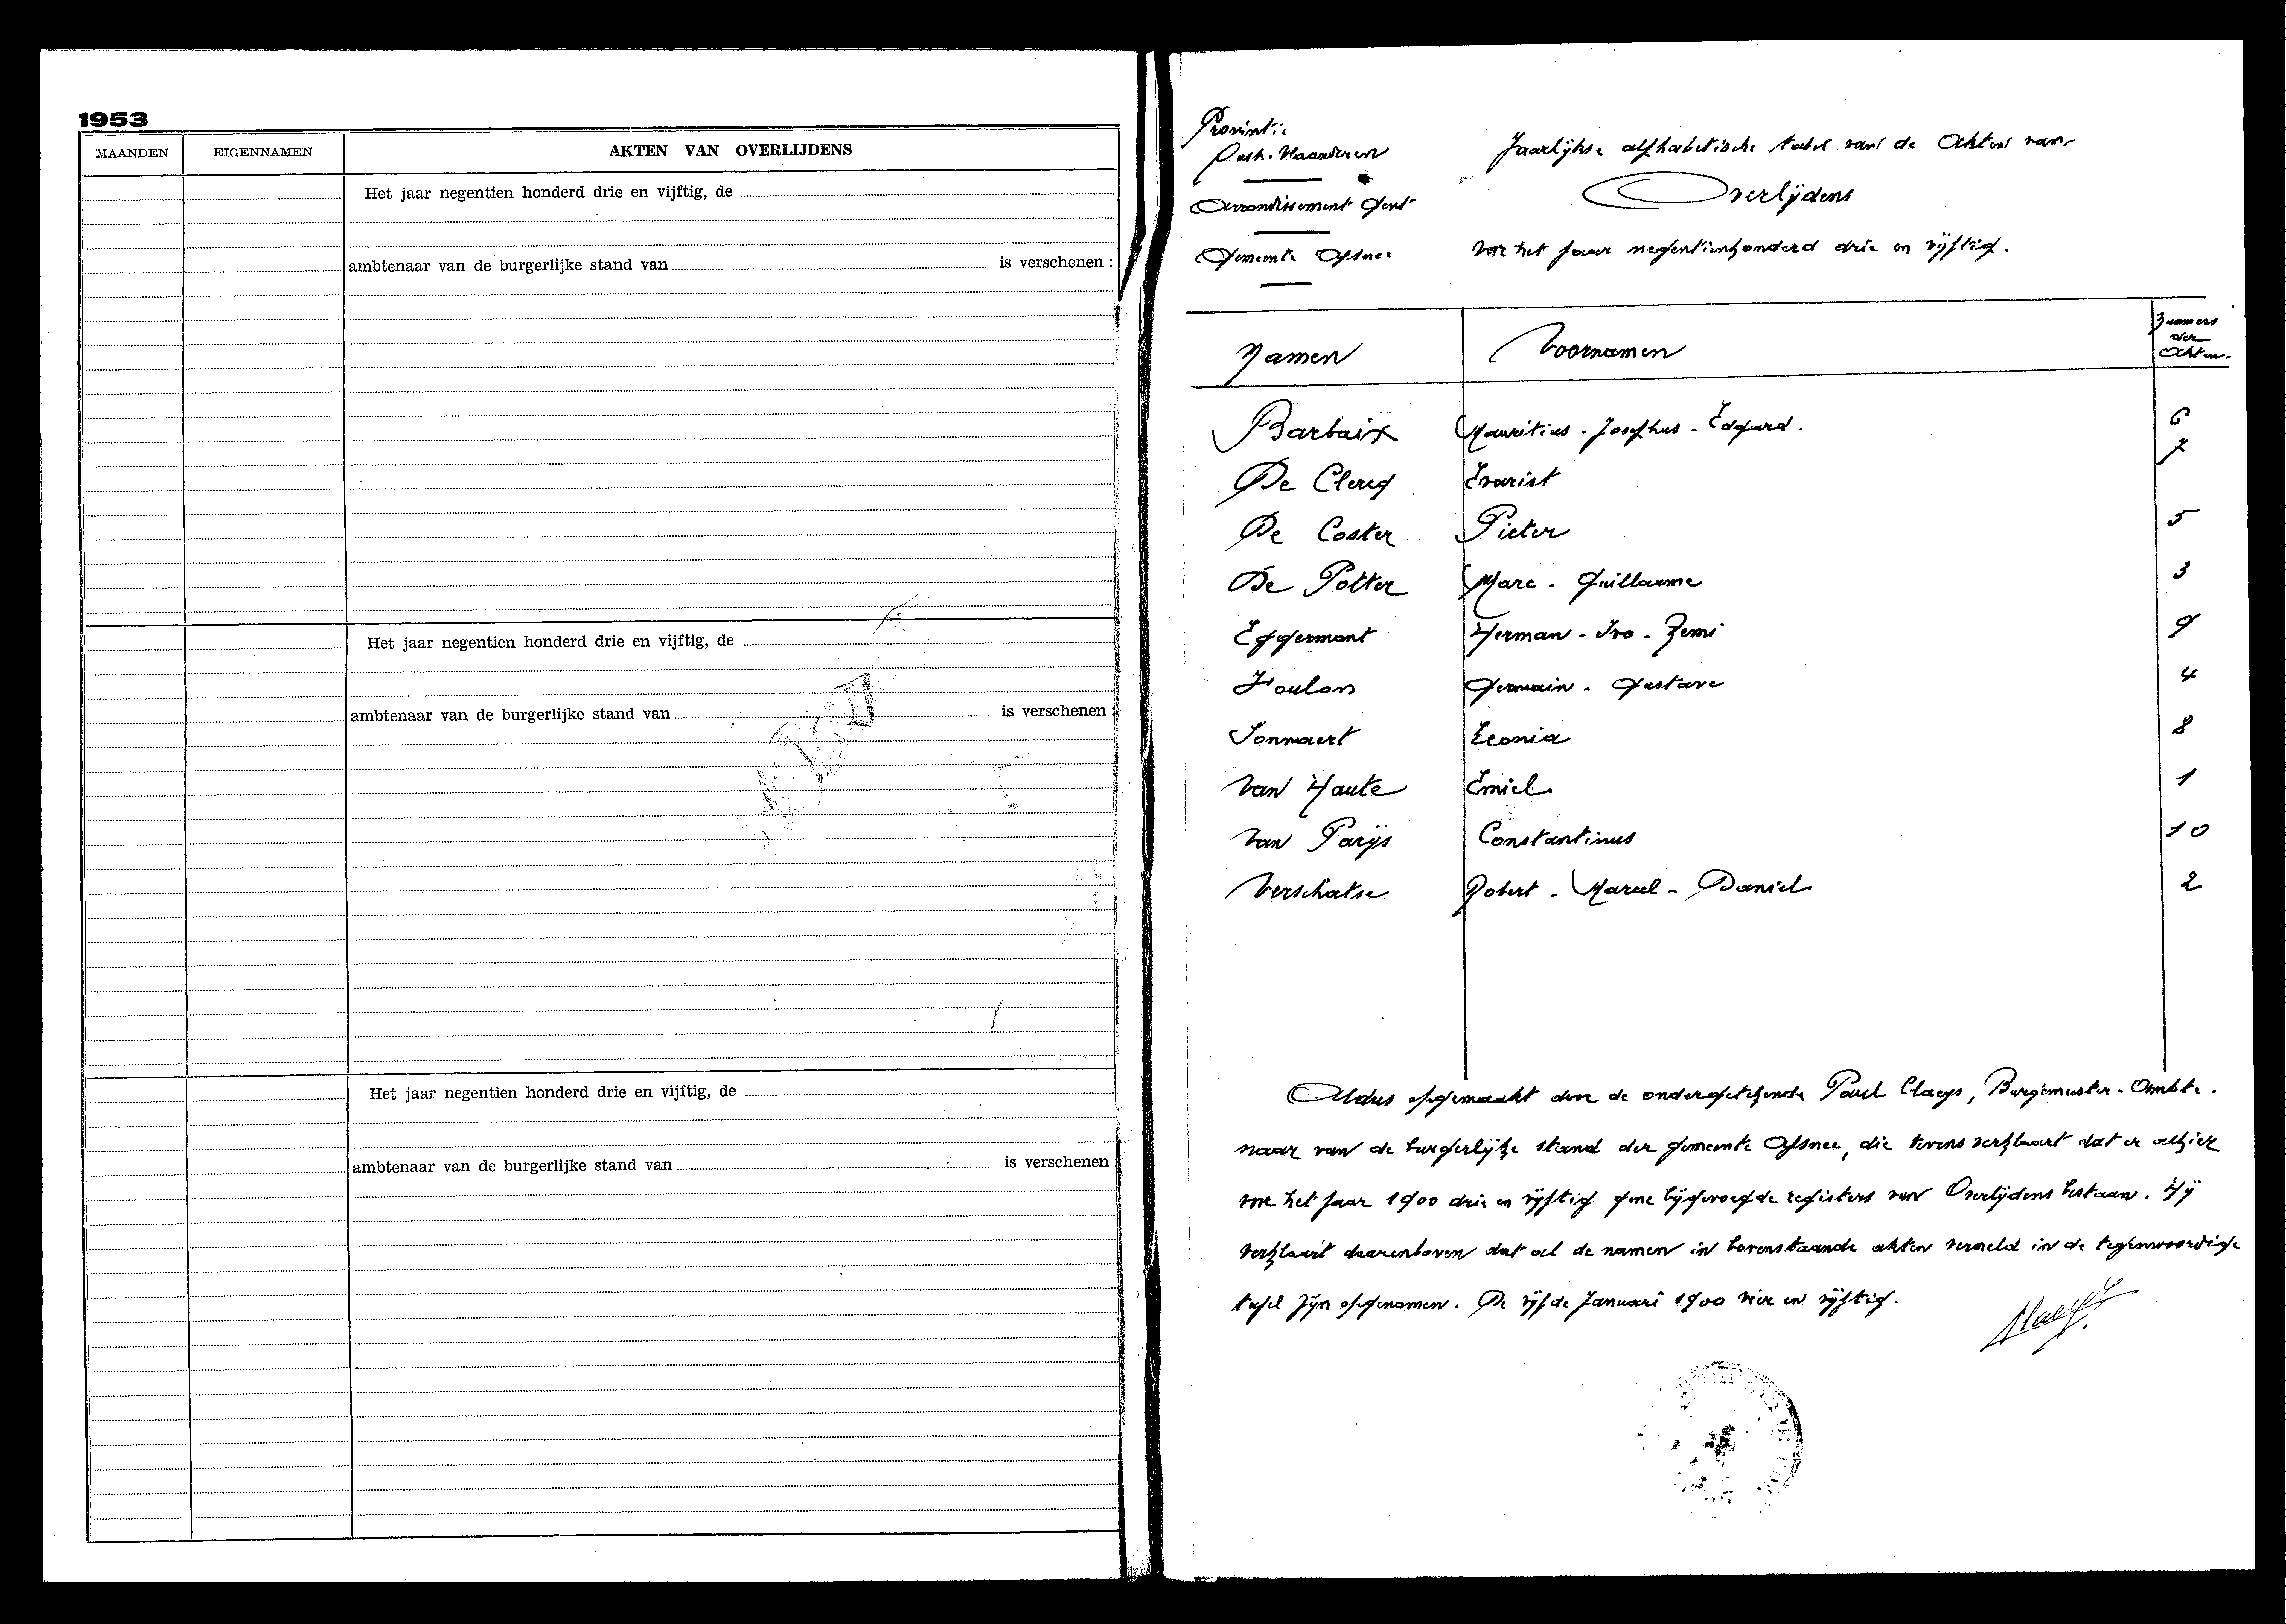 1953
MAANDEN EIGENNAMEN AKTEN VAN OVERLIJDENS
Het jaar negentien honderd drie en vijftig, de
ambtenaar van de burgerlijke stand van is verschenen :
Het jaar negentien honderd drie en vijftig, de
ambtenaar van de burgerlijke stand van is verschenen :
Het jaar negentien honderd drie en vijftig, de
ambtenaar van de burgerlijke stand van is verschenen
Provintie
Oost-Vlaanderen
Arrondissement Gent
Gemeente Afsnee
Jaarlijkse alphabetische tabel van de Akten van
Overlijdens
voor het jaar negentienhonderd drie en vijftig.
Namen Voornamen Nummers
der
Akten.
Barbaix Mauritius - Josephus - Edgard. 6
De Clercq Evarist 7
De Coster Pieter 5
De Potter Marc - Guillaume 3
Eggermont Herman - Ivo - Remi 9
Foulon Germain - Gustave 4
Sonnaert Leonia 8
Van Haute Emiel 1
Van Parijs Constantinus 10
Verschatse Robert - Marcel - Daniel 2
Aldus opgemaakt door de ondergetekende Paul Claeys, Burgemeester-Ambte-
naar van de burgerlijke stand der gemeente Afsnee, die tevens verklaart dat er alhier
voor het jaar 1900 drie en vijftig gene bijgevoegde registers van Overlijdens bestaan. Hij
verklaart daarenboven dat al de namen in bovenstaande akten vermeld in de tegenwoordige
tafel zijn opgenomen. De vijfde Januari 1900 vier en vijftig.
Claeys